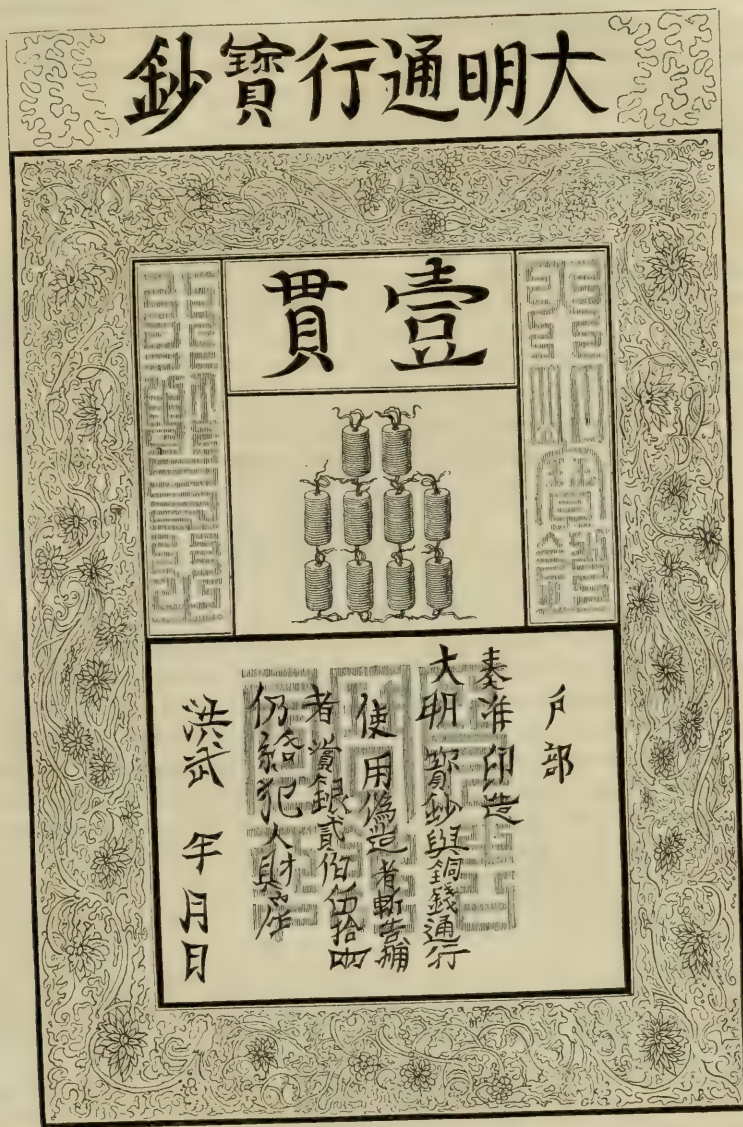 大明通行寶鈔
壹貫
户部
奏准印造
大明寶鈔與銅錢通行
使用偽造者斬告捕
者賞銀貳佰伍拾兩
仍給犯人財產
洪武 年 月 日